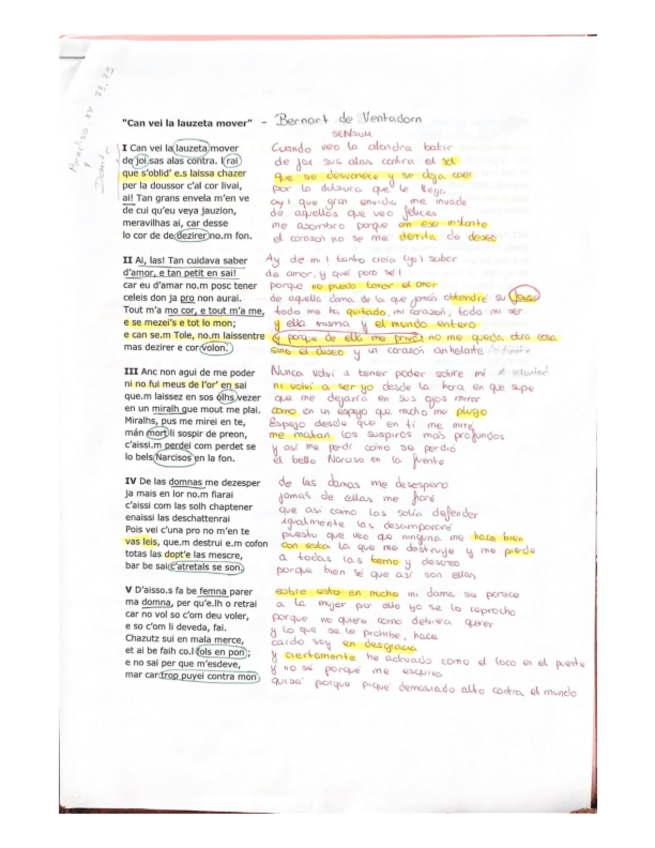 Paradiso XX 73, 75
Dante
"Can vei la lauzeta mover" - Bernart de Ventadorn
SENSUM
I Can vei la lauzeta mover Cuando veo la alondra batir
de joi sas alas contra. l rai de joi sus alas contra el sol
que s'oblid' e.s laissa chazer que se desvanece y se deja caer
per la doussor c'al cor livai, por la dulzura que le llega
ai! Tan grans envela m'en ve ay! que gran envidia me invade
de cui qu'eu veya jauzion, de aquellos que veo felices
meravilhas ai, car desse me asombro porque en ese instante
lo cor de de dezirer no.m fon. el corazón no se me derrita de deseo
II Ai, las! Tan cuidava saber Ay de mí! tanto creía (yo) saber
d'amor, e tan petit en sai! de amor, y qué poco sé!
car eu d'amar no.m posc tener porque no puedo tener el amor
celeis don ja pro non aurai. de aquella dama de la que jamás obtendré su favor
Tout m'a mo cor, e tout m'a me, todo me ha quitado, mi corazón, todo mi ser
e se mezei's e tot lo mon; y ella misma y el mundo entero
e can se.m Tole, no.m laissentre y porque de ella me privó no me queda otra cosa
mas dezirer e cor volon. sino el deseo y un corazón anhelante
III Anc non agui de me poder Nunca volví a tener poder sobre mí ≠ voluntad
ni no fui meus de l'or' en sai ni volví a ser yo desde la hora en que supe
que.m laissez en sos olhs vezer que me dejaría en sus ojos mirar
en un miralh que mout me plai. como en un espejo que mucho me plugo
Miralhs, pus me mirei en te, Espejo desde que en ti me miré
mán mort li sospir de preon, me matan los suspiros más profundos
c'aissi.m perdei com perdet se y así me perdí como se perdió
lo bels Narcisos en la fon. el bello Narciso en la fuente
IV De las domnas me dezesper de las damas me desespero
ja mais en lor no.m fiarai jamás de ellas me fiaré
c'aissi com las solh chaptener que así como las solía defender
enaissi las deschattenrai igualmente las desampararé
Pois vei c'una pro no m'en te puesto que veo que ninguna me hace bien
vas leis, que.m destrui e.m cofon con esta la que me destruye y me pierde
totas las dopt'e las mescre, a todas las temo y descreo
bar be sai c'atretals se son. porque bien sé que así son ellas
V D'aisso.s fa be femna parer sobre esto en mucho mi dama se parece
ma domna, per qu'e.lh o retrai a la mujer por ello yo se lo reprocho
car no vol so c'om deu voler, porque no quiere como debiera querer
e so c'om li deveda, fai. y lo que se le prohíbe, hace
Chazutz sui en mala merce, caído soy en desgracia
et ai be faih co.l fols en pon; y ciertamente he actuado como el loco en el puente
e no sai per que m'esdeve, y no sé porqué me esquiva
mar car trop puyei contra mon quizá porque piqué demasiado alto contra el mundo